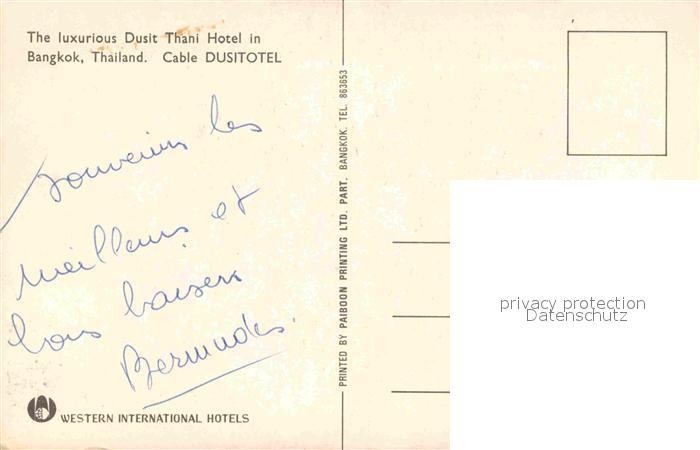 The luxurious Dusit Thani Hotel in
Bangkok, Thailand. Cable DUSITOTEL
souvenirs les
meilleurs et
bons baisers
WESTERN INTERNATIONAL HOTELS
PRINTED BY PAIBOON PRINTING LTD. PART. BANGKOK. TEL. 863653
privacy protection
Datenschutz